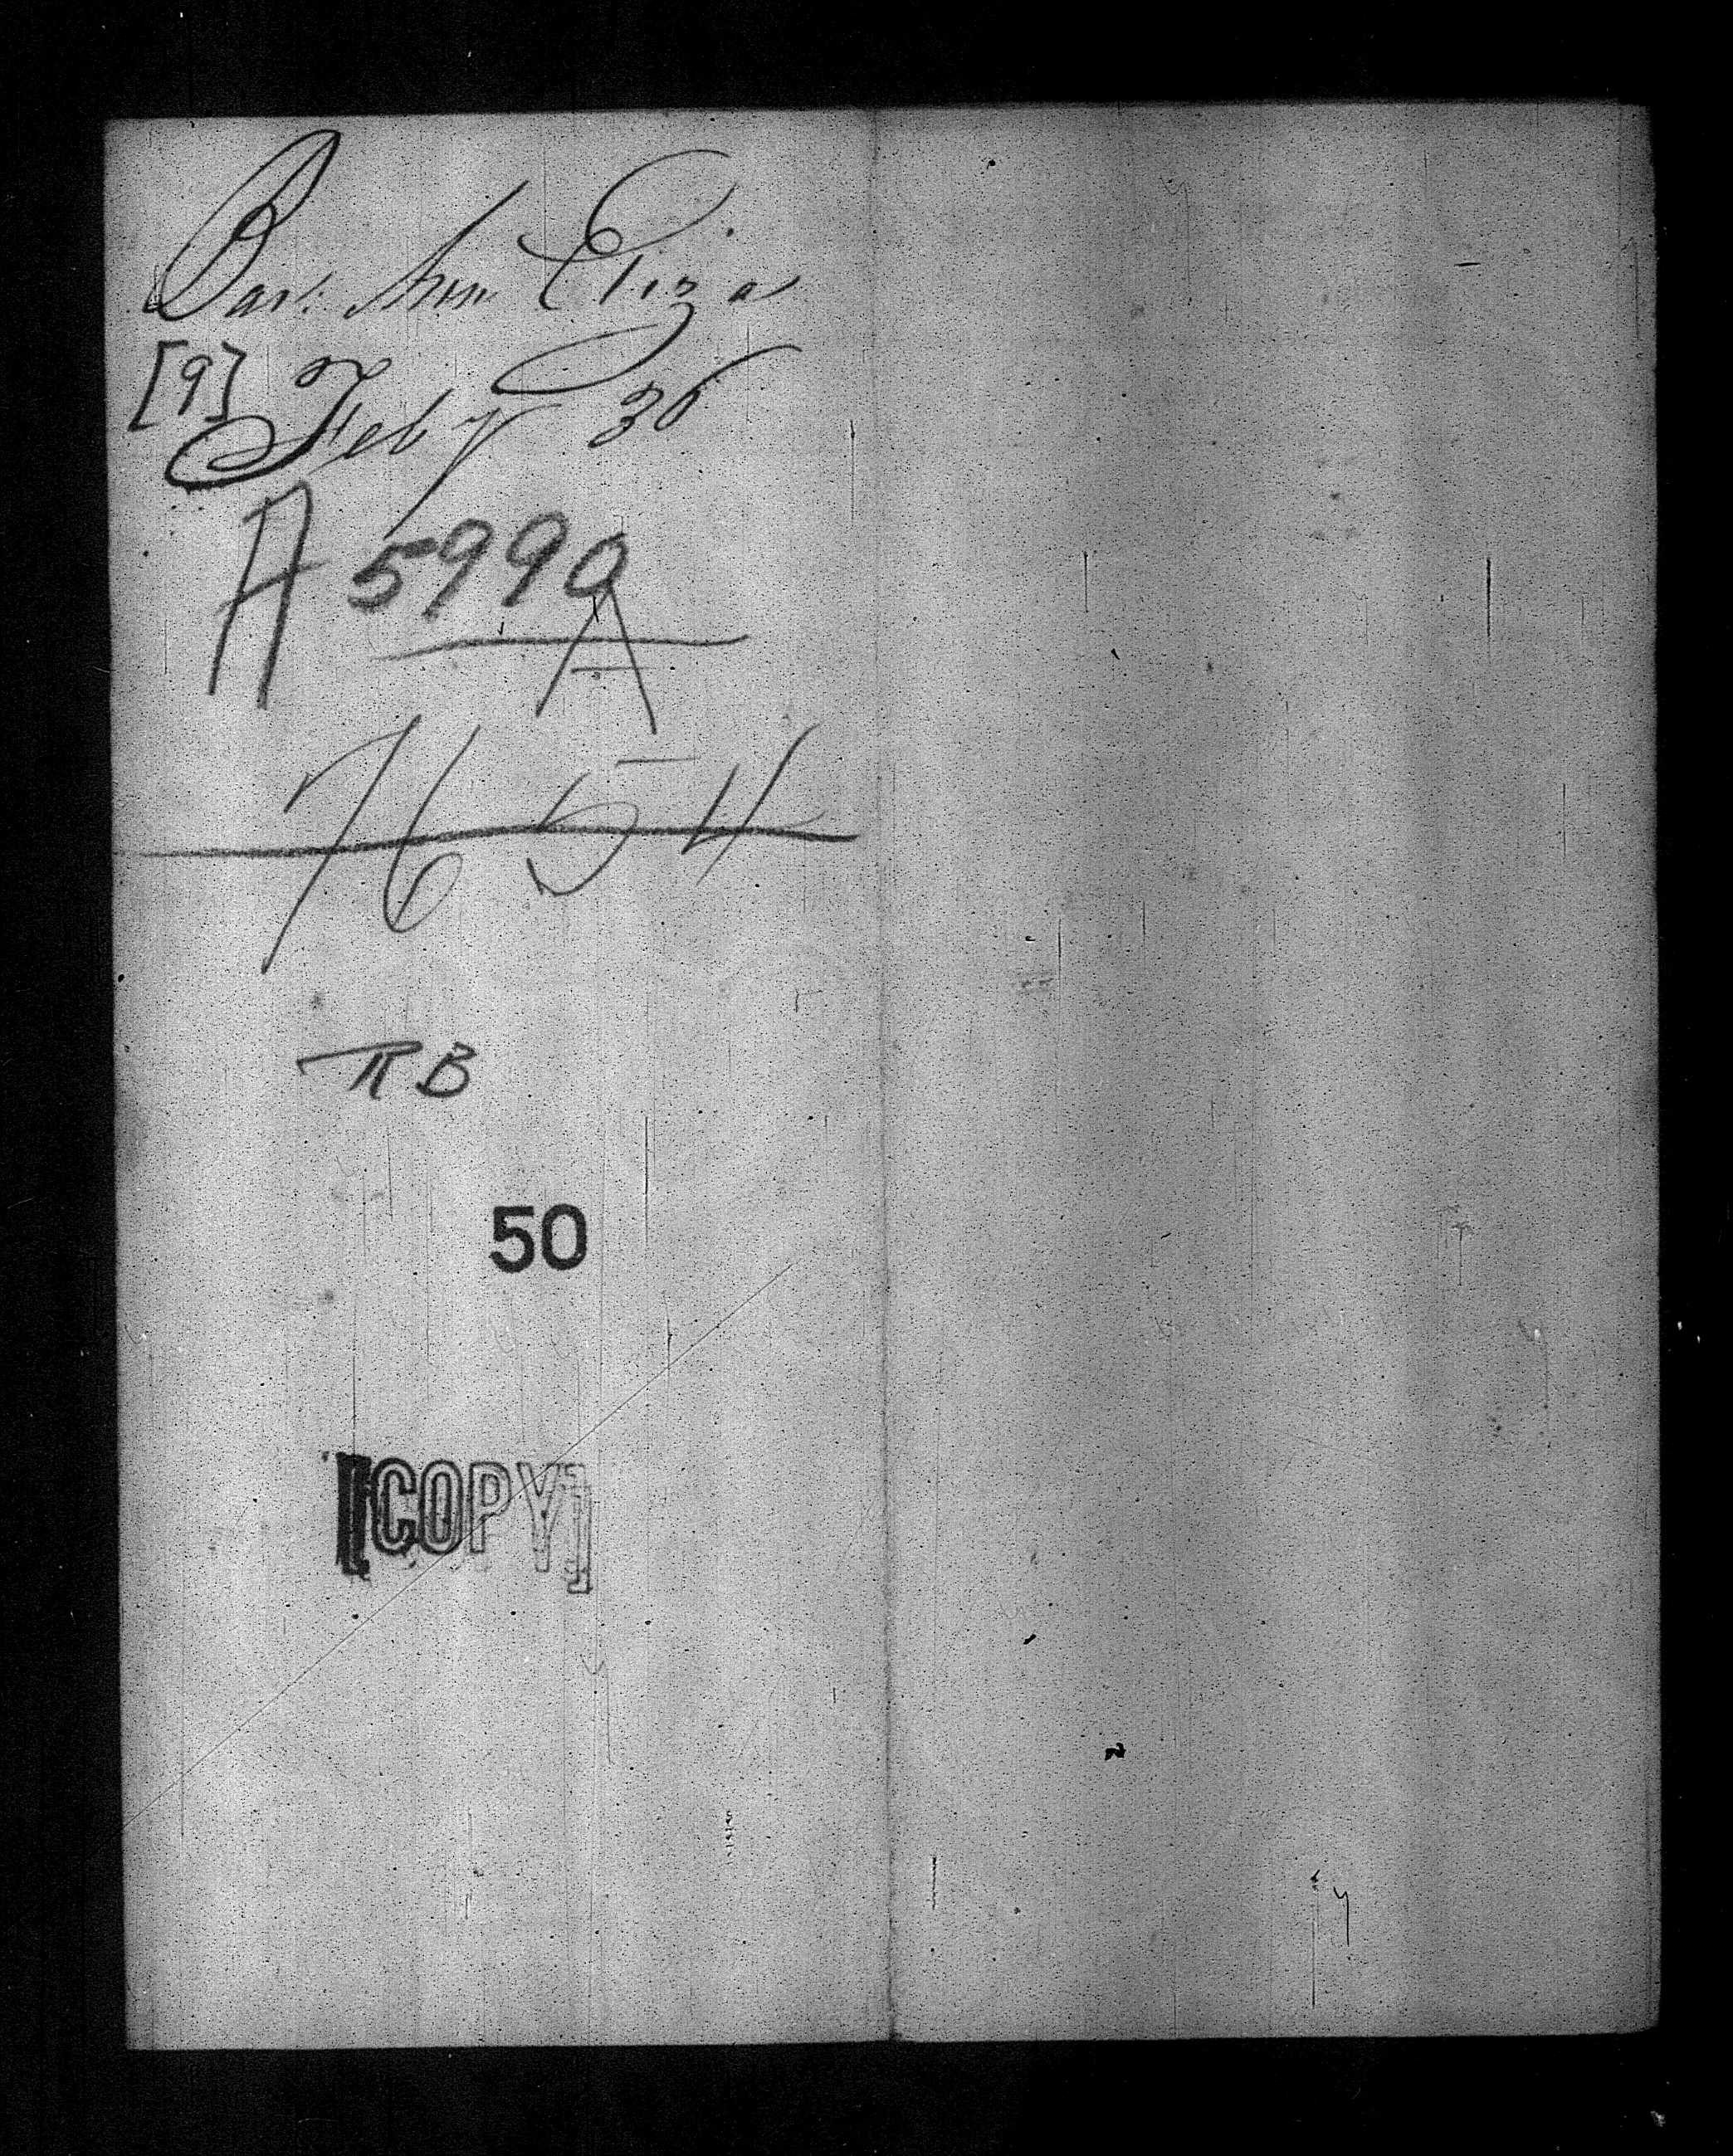 Bar. Ann Eliza
[9] Feby 36
A 5990
A
7654
RB
50
[COPY]